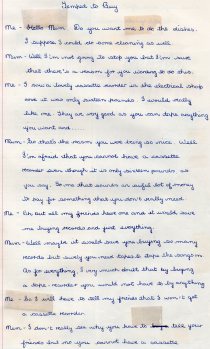 Tempted to Buy
Me - Hello Mum. Do you want me to do the dishes.
I suppose I could do some cleaning as well.
Mum - Well I'm not going to stop you but I'm sure
that there's a reason for you wanting to do this.
Me - I saw a lovely cassette recorder in the electrical shop
and it was only sixteen pounds. I would really
like one. They are very good as you can tape anything
you want and.....
Mum - So that's the reason you were being so nice. Well
I'm afraid that you cannot have a cassette
recorder even though it is only sixteen pounds as
you say. To me that sounds an awful lot of money
to pay for something that you don't really need.
Me - Oh but all my friends have one and it would save
me buying records and just everything.
Mum - Well maybe it would save you buying so many
records but surely you need tapes to tape the songs on
As for everything I very much doubt that by buying
a tape-recorder you would not have to by anything
Me - So I will have to tell my friends that I won't get
a cassette recorder
Mum - I don't really see why you have to tell your
friends but no you cannot have a cassette